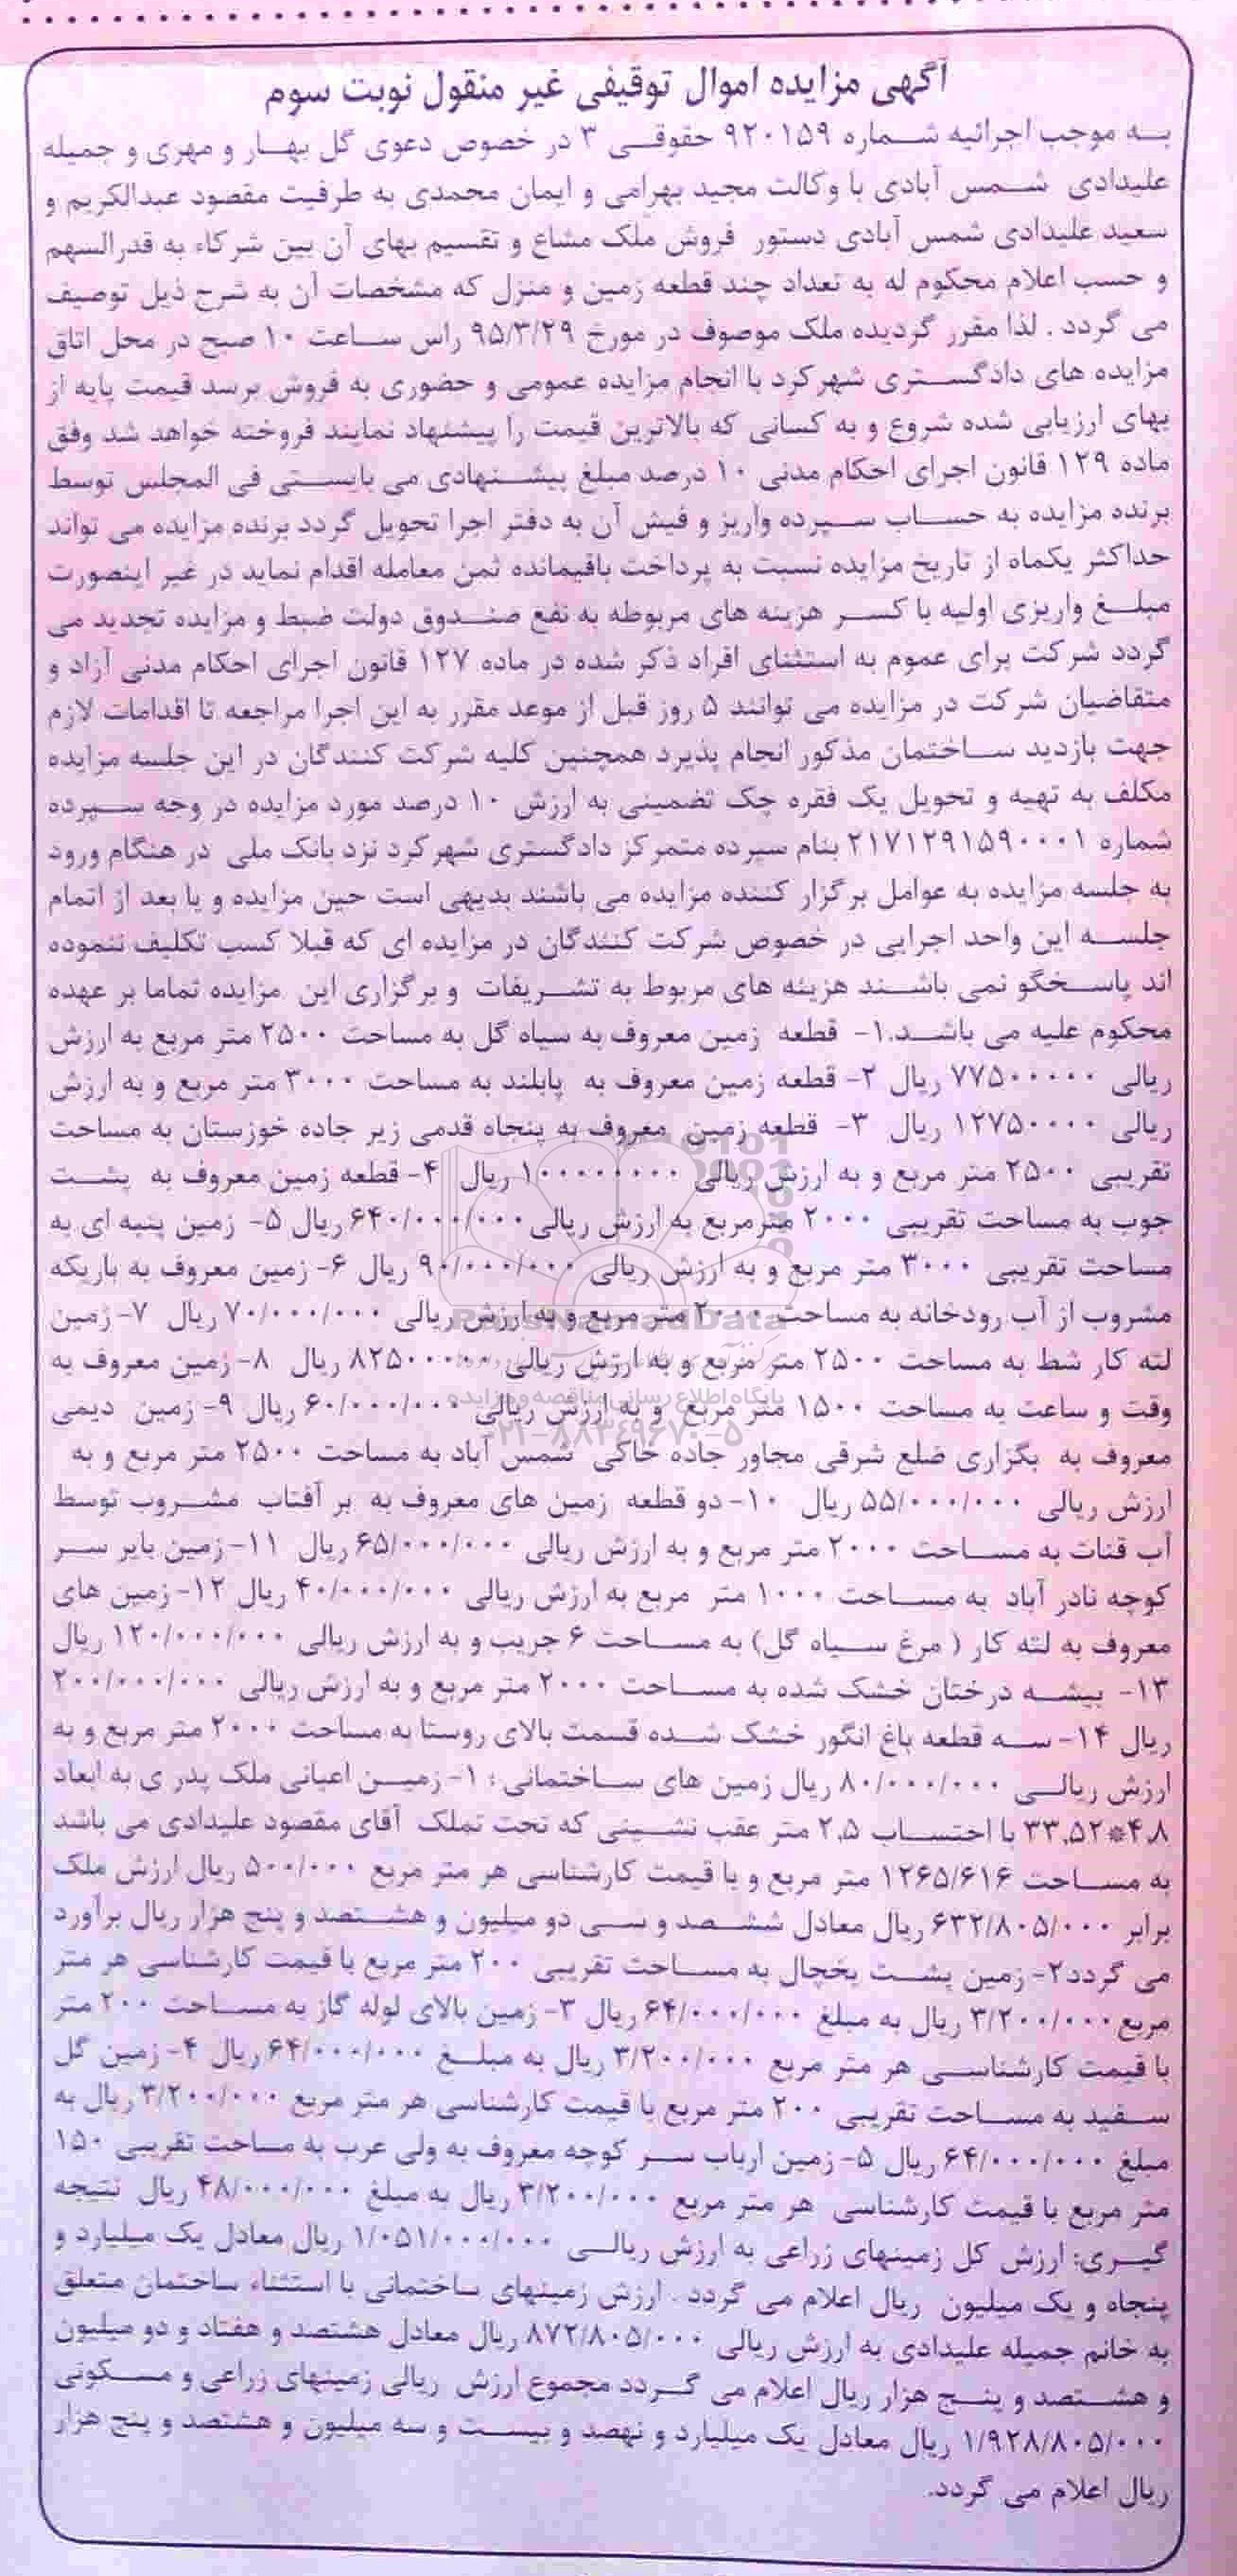 آگهی مزایده اموال توقیفی غیر منقول نوبت سوم
به موجب اجرائیه شماره ۹۲۰۱۵۹ حقوقی ۳ در خصوص دعوی گل بهار و مهری و جمیله
علیدادی شمس آبادی با وکالت مجید بهرامی و ایمان محمدی به طرفیت مقصود عبدالکریم و
سعید علیدادی شمس آبادی دستور فروش ملک مشاع و تقسیم بهای آن بین شرکاء به قدرالسهم
و حسب اعلام محکوم له به تعداد چند قطعه زمین و منزل که مشخصات آن به شرح ذیل توصیف
می گردد . لذا مقرر گردیده ملک موصوف در مورخ ۹۵/۳/۲۹ راس ساعت ۱۰ صبح در محل اتاق
مزایده های دادگستری شهرکرد با انجام مزایده عمومی و حضوری به فروش برسد قیمت پایه از
بهای ارزیابی شده شروع و به کسانی که بالاترین قیمت را پیشنهاد نمایند فروخته خواهد شد وفق
ماده ۱۲۹ قانون اجرای احکام مدنی ۱۰ درصد مبلغ پیشنهادی می بایستی فی المجلس توسط
برنده مزایده به حساب سپرده واریز و فیش آن به دفتر اجرا تحویل گردد برنده مزایده می تواند
حداکثر یکماه از تاریخ مزایده نسبت به پرداخت باقیمانده ثمن معامله اقدام نماید در غیر اینصورت
مبلغ واریزی اولیه با کسر هزینه های مربوطه به نفع صندوق دولت ضبط و مزایده تجدید می
گردد شرکت برای عموم به استثنای افراد ذکر شده در ماده ۱۲۷ قانون اجرای احکام مدنی آزاد و
متقاضیان شرکت در مزایده می توانند ۵ روز قبل از موعد مقرر به این اجرا مراجعه تا اقدامات لازم
جهت بازدید ساختمان مذکور انجام پذیرد همچنین کلیه شرکت کنندگان در این جلسه مزایده
مکلف به تهیه و تحویل یک فقره چک تضمینی به ارزش ۱۰ درصد مورد مزایده در وجه سپرده
شماره ۲۱۷۱۲۹۱۵۹۰۰۰۱ بنام سپرده متمرکز دادگستری شهرکرد نزد بانک ملی در هنگام ورود
به جلسه مزایده به عوامل برگزار کننده مزایده می باشند بدیهی است حین مزایده و یا بعد از اتمام
جلسه این واحد اجرایی در خصوص شرکت کنندگان در مزایده ای که قبلا کسب تکلیف ننموده
اند پاسخگو نمی باشند هزینه های مربوط به تشریفات و برگزاری این مزایده تماما بر عهده
محکوم علیه می باشد.۱- قطعه زمین معروف به سیاه گل به مساحت ۲۵۰۰ متر مربع به ارزش
ریالی ۷۷۵۰۰۰۰۰ ریال ۲- قطعه زمین معروف به پابلند به مساحت ۳۰۰۰ متر مربع و به ارزش
ریالی ۱۲۷۵۰۰۰۰ ریال ۳- قطعه زمین معروف به پنجاه قدمی زیر جاده خوزستان به مساحت
تقریبی ۲۵۰۰ متر مربع و به ارزش ریالی ۱۰۰۰۰۰۰۰۰ ریال ۴- قطعه زمین معروف به پشت
جوب به مساحت تقریبی ۲۰۰۰ مترمربع به ارزش ریالی ۶۴۰/۰۰۰/۰۰۰ ریال ۵- زمین پنبه ای به
مساحت تقریبی ۳۰۰۰ متر مربع و به ارزش ریالی ۹۰/۰۰۰/۰۰۰ ریال ۶- زمین معروف به باریکه
مشروب از آب رودخانه به مساحت ۲۰۰۰ متر مربع و به ارزش ریالی ۷۰/۰۰۰/۰۰۰ ریال ۷- زمین
لته کار شط به مساحت ۲۵۰۰ متر مربع و به ارزش ریالی ۸۲۵۰۰۰۰۰ ریال ۸- زمین معروف به
وقت و ساعت به مساحت ۱۵۰۰ متر مربع و به ارزش ریالی ۶۰/۰۰۰/۰۰۰ ریال ۹- زمین دیمی
معروف به بگزاری ضلع شرقی مجاور جاده خاکی شمس آباد به مساحت ۲۵۰۰ متر مربع و به
ارزش ریالی ۵۵/۰۰۰/۰۰۰ ریال ۱۰- دو قطعه زمین های معروف به بر آفتاب مشروب توسط
آب قنات به مساحت ۲۰۰۰ متر مربع و به ارزش ریالی ۶۵/۰۰۰/۰۰۰ ریال ۱۱- زمین بایر سر
کوچه نادر آباد به مساحت ۱۰۰۰ متر مربع به ارزش ریالی ۴۰/۰۰۰/۰۰۰ ریال ۱۲- زمین های
معروف به لته کار ( مرغ سیاه گل) به مساحت ۶ جریب و به ارزش ریالی ۱۲۰/۰۰۰/۰۰۰ ریال
۱۳- بیشه درختان خشک شده به مساحت ۲۰۰۰ متر مربع و به ارزش ریالی ۲۰۰/۰۰۰/۰۰۰
ریال ۱۴- سه قطعه باغ انگور خشک شده قسمت بالای روستا به مساحت ۲۰۰۰ متر مربع و به
ارزش ریالی ۸۰/۰۰۰/۰۰۰ ریال زمین های ساختمانی : ۱- زمین اعیانی ملک پدری به ابعاد
۴.۸*۳۳.۵۲ با احتساب ۲.۵ متر عقب نشینی که تحت تملک آقای مقصود علیدادی می باشد
به مساحت ۱۲۶۵/۶۱۶ متر مربع و با قیمت کارشناسی هر متر مربع ۵۰۰/۰۰۰ ریال ارزش ملک
برابر ۶۳۲/۸۰۵/۰۰۰ ریال معادل ششصد و سی دو میلیون و هشتصد و پنج هزار ریال برآورد
می گردد۲- زمین پشت یخچال به مساحت تقریبی ۲۰۰ متر مربع با قیمت کارشناسی هر متر
مربع ۳/۲۰۰/۰۰۰ ریال به مبلغ ۶۴/۰۰۰/۰۰۰ ریال ۳- زمین بالای لوله گاز به مساحت ۲۰۰ متر
با قیمت کارشناسی هر متر مربع ۳/۲۰۰/۰۰۰ ریال به مبلغ ۶۴/۰۰۰/۰۰۰ ریال ۴- زمین گل
سفید به مساحت تقریبی ۲۰۰ متر مربع با قیمت کارشناسی هر متر مربع ۳/۲۰۰/۰۰۰ ریال به
مبلغ ۶۴/۰۰۰/۰۰۰ ریال ۵- زمین ارباب سر کوچه معروف به ولی عرب به مساحت تقریبی ۱۵۰
متر مربع با قیمت کارشناسی هر متر مربع ۳/۲۰۰/۰۰۰ ریال به مبلغ ۴۸/۰۰۰/۰۰۰ ریال نتیجه
گیری: ارزش کل زمینهای زراعی به ارزش ریالی ۱/۰۵۱/۰۰۰/۰۰۰ ریال معادل یک میلیارد و
پنجاه و یک میلیون ریال اعلام می گردد . ارزش زمینهای ساختمانی با استثناء ساختمان متعلق
به خانم جمیله علیدادی به ارزش ریالی ۸۷۲/۸۰۵/۰۰۰ ریال معادل هشتصد و هفتاد و دو میلیون
و هشتصد و پنج هزار ریال اعلام می گردد مجموع ارزش ریالی زمینهای زراعی و مسکونی
۱/۹۲۸/۸۰۵/۰۰۰ ریال معادل یک میلیارد و نهصد و بیست و سه میلیون و هشتصد و پنج هزار
ریال اعلام می گردد.
ParsNamadData
پایگاه اطلاع رسانی مناقصه و مزایده
۰۲۱-۸۸۳۴۹۶۷۰-۵